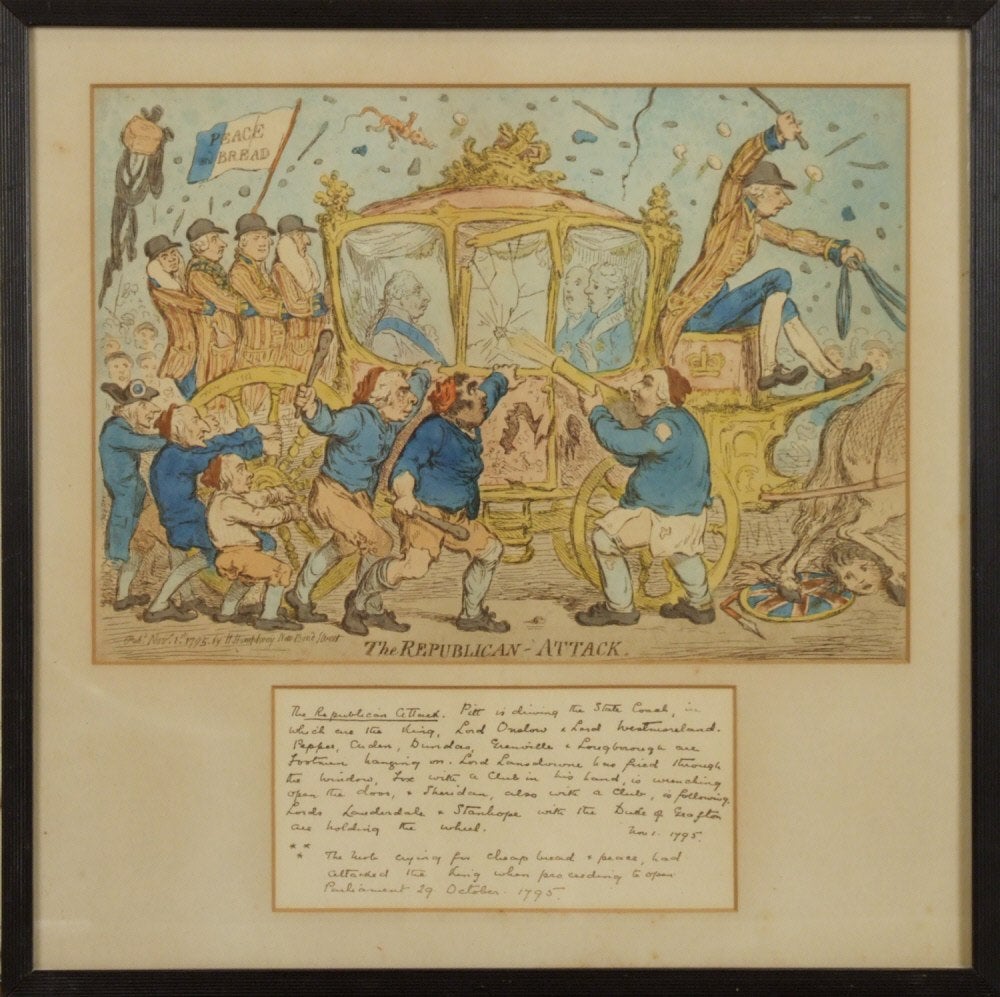 PEACE
and BREAD
Pubd. Novr. 1st. 1795. by H. Humphrey New Bond Street
The REPUBLICAN-ATTACK.
The Republican Attack. Pitt is driving the State Coach, in
which are the King, Lord Onslow & Lord Westmoreland.
Pepper, Arden, Dundas, Grenville & Loughborough are
footmen hanging on. Lord Lansdowne has fired through
the window, Fox with a Club in his hand, is wrenching
open the door, & Sheridan, also with a Club, is following.
Lords Lauderdale & Stanhope with the Duke of Grafton
are holding the wheel. Nov 1. 1795.
* * * The mob crying for cheap bread & peace, had
attacked the King when proceeding to open
Parliament 29 October. 1795.